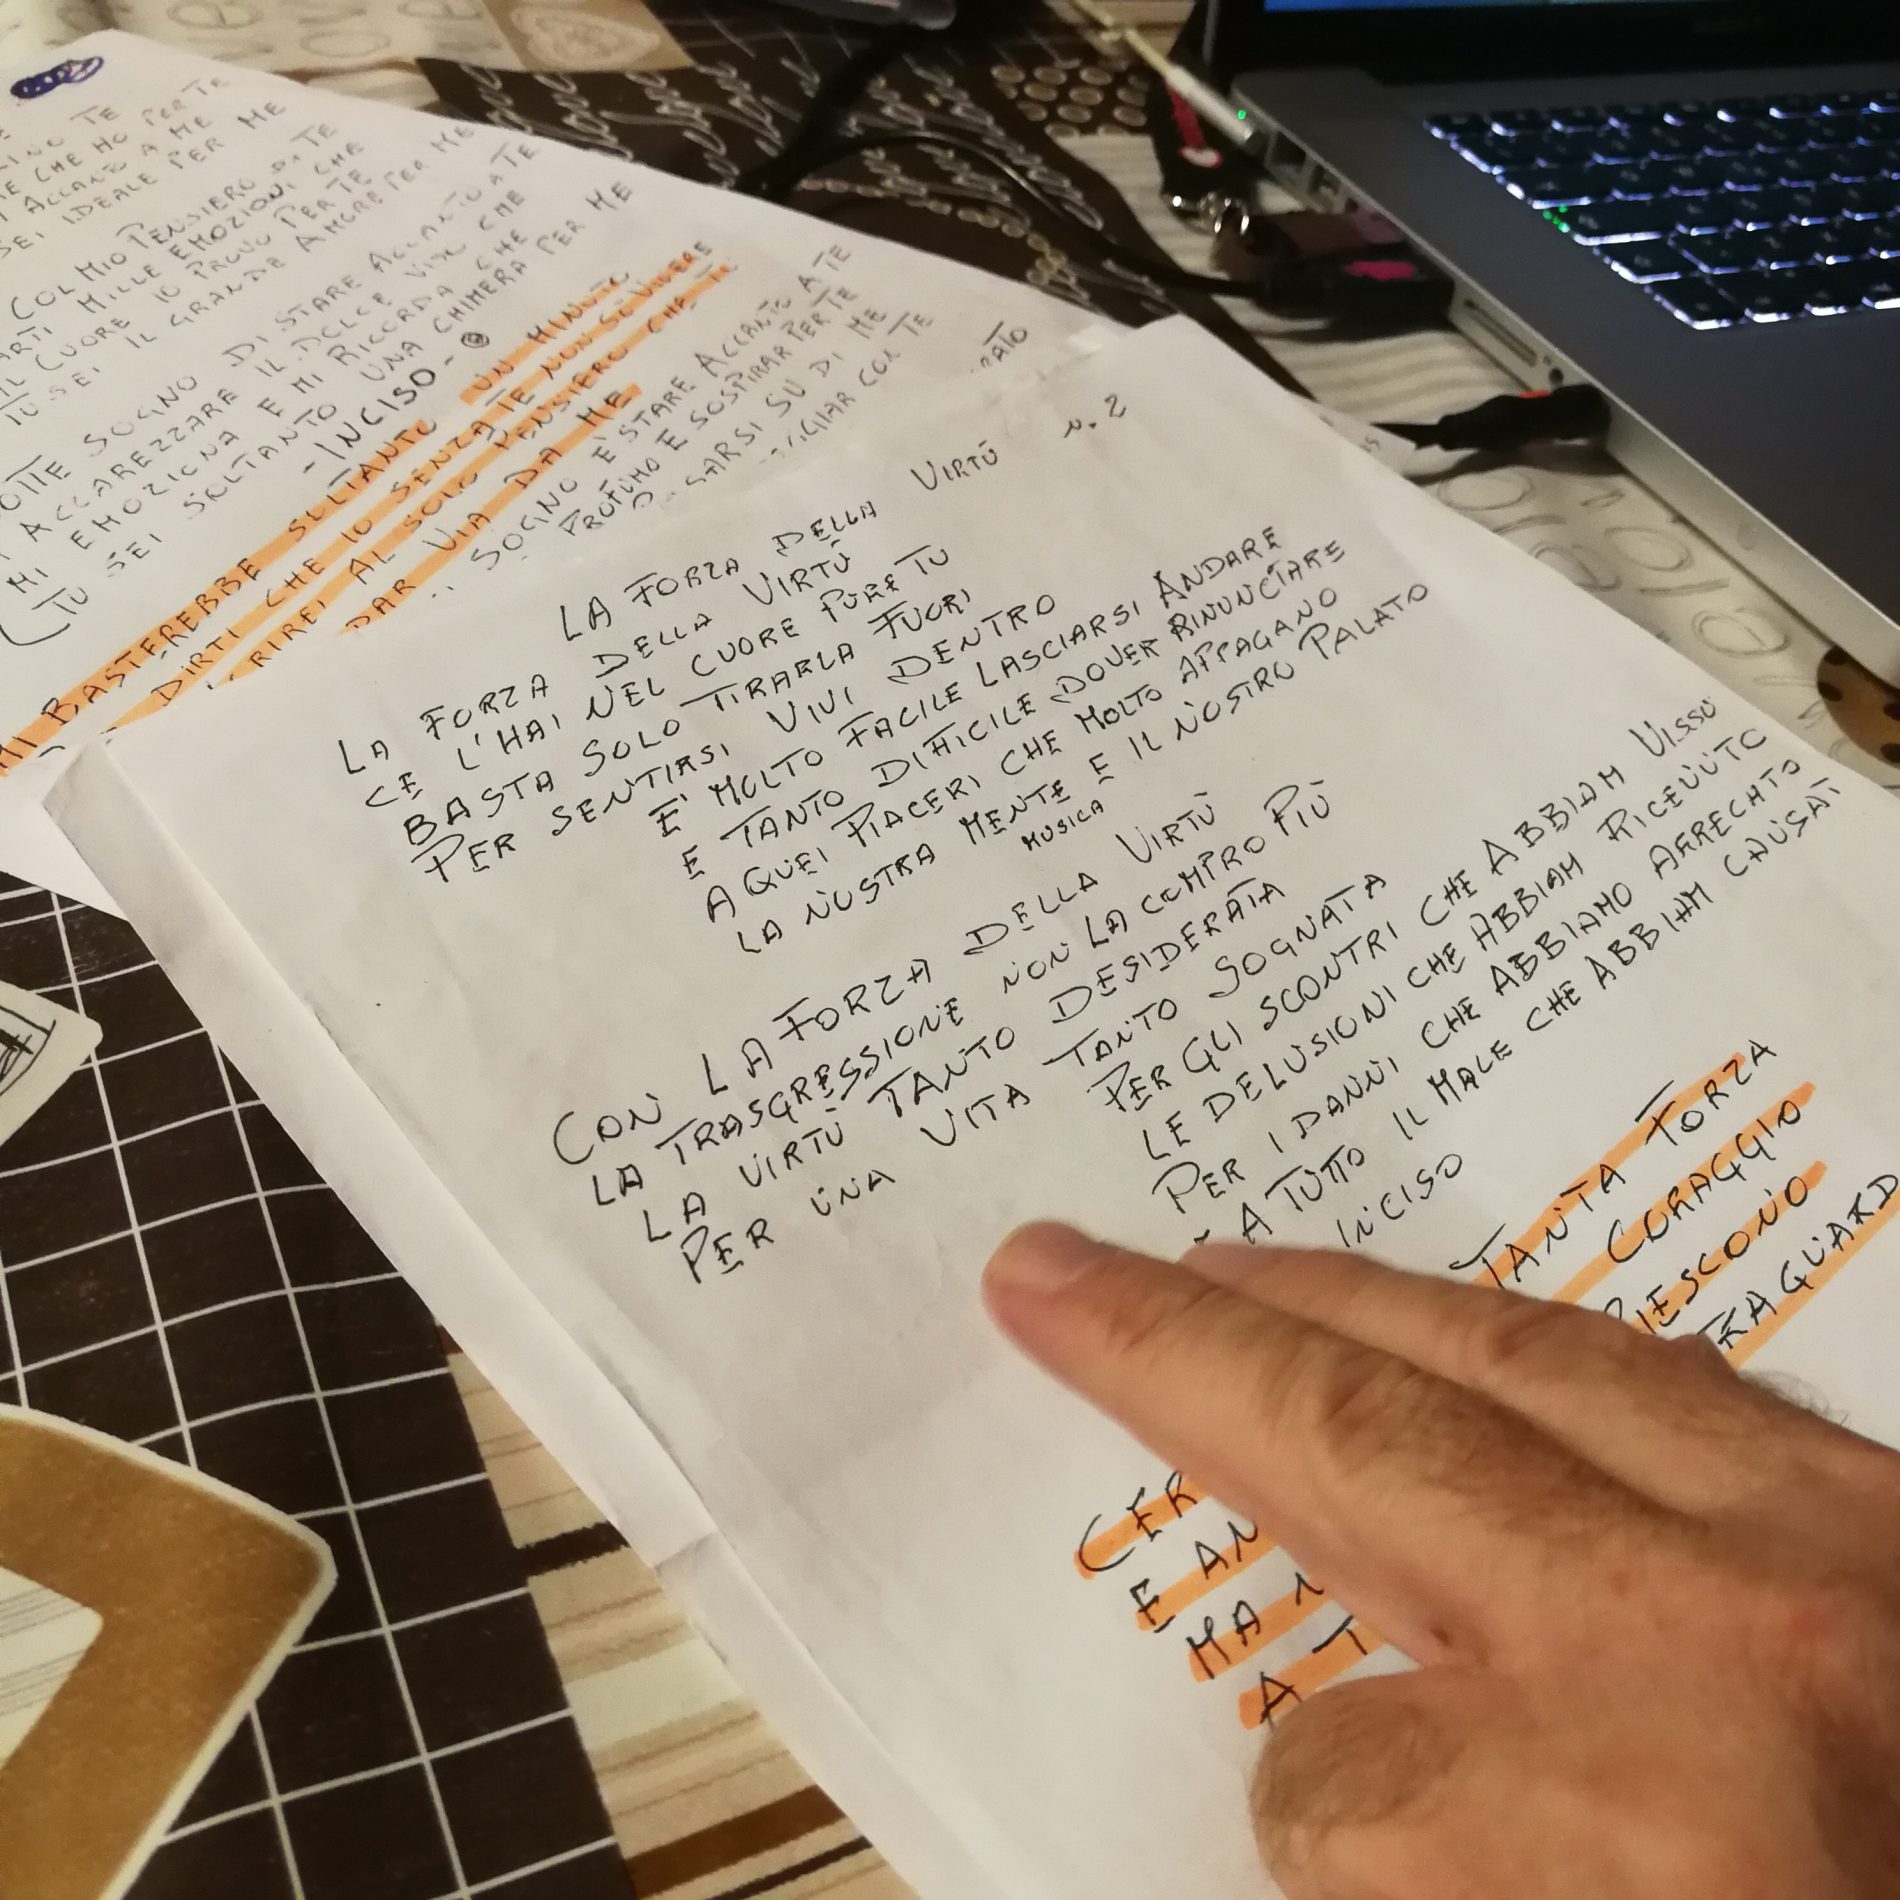 TE
CHE HO PER TE
ACCANTO A ME
SEI IDEALE PER ME
COL MIO PENSIERO DI TE
MILLE EMOZIONI CHE
IL CUORE IO PROVO PER TE
TU SEI IL GRANDE AMORE PER ME
SOGNO DI STARE ACCANTO A TE
ACCAREZZARE IL DOLCE VISO CHE
MI EMOZIONA E MI RICORDA CHE
TU SEI SOLTANTO UNA CHIMERA PER ME
- INCISO -
MI BASTEREBBE SOLTANTO UN MINUTO
DIRTI CHE IO SENZA TE NON SO VIVERE
AL SOLO PENSIERO CHE TE
DAR VIA DA ME
SOGNO E' STARE ACCANTO A TE
PROFUMO E SOSPIRAR PER TE
SU DI ME
CON TE
LA FORZA DELLA VIRTÙ N. 2
LA FORZA DELLA VIRTÙ
CE L'HAI NEL CUORE PURE TU
BASTA SOLO TIRARLA FUORI
PER SENTIRSI VIVI DENTRO
E' MOLTO FACILE LASCIARSI ANDARE
E TANTO DIFFICILE DOVER RINUNCIARE
A QUEI PIACERI CHE MOLTO APPAGANO
LA NOSTRA MENTE E IL NOSTRO PALATO
MUSICA
CON LA FORZA DELLA VIRTÙ
LA TRASGRESSIONE NON LA COMPRO PIÙ
LA VIRTÙ TANTO DESIDERATA
PER UNA VITA TANTO SOGNATA
PER GLI SCONTRI CHE ABBIAM VISSUTO
LE DELUSIONI CHE ABBIAM RICEVUTO
PER I DANNI CHE ABBIAMO ARRECATO
A TUTTO IL MALE CHE ABBIAM CAUSAT
INCISO
TANTA FORZA
CORAGGIO
RIESCONO
TRAGUARD
CER
E AN
MA N
A T